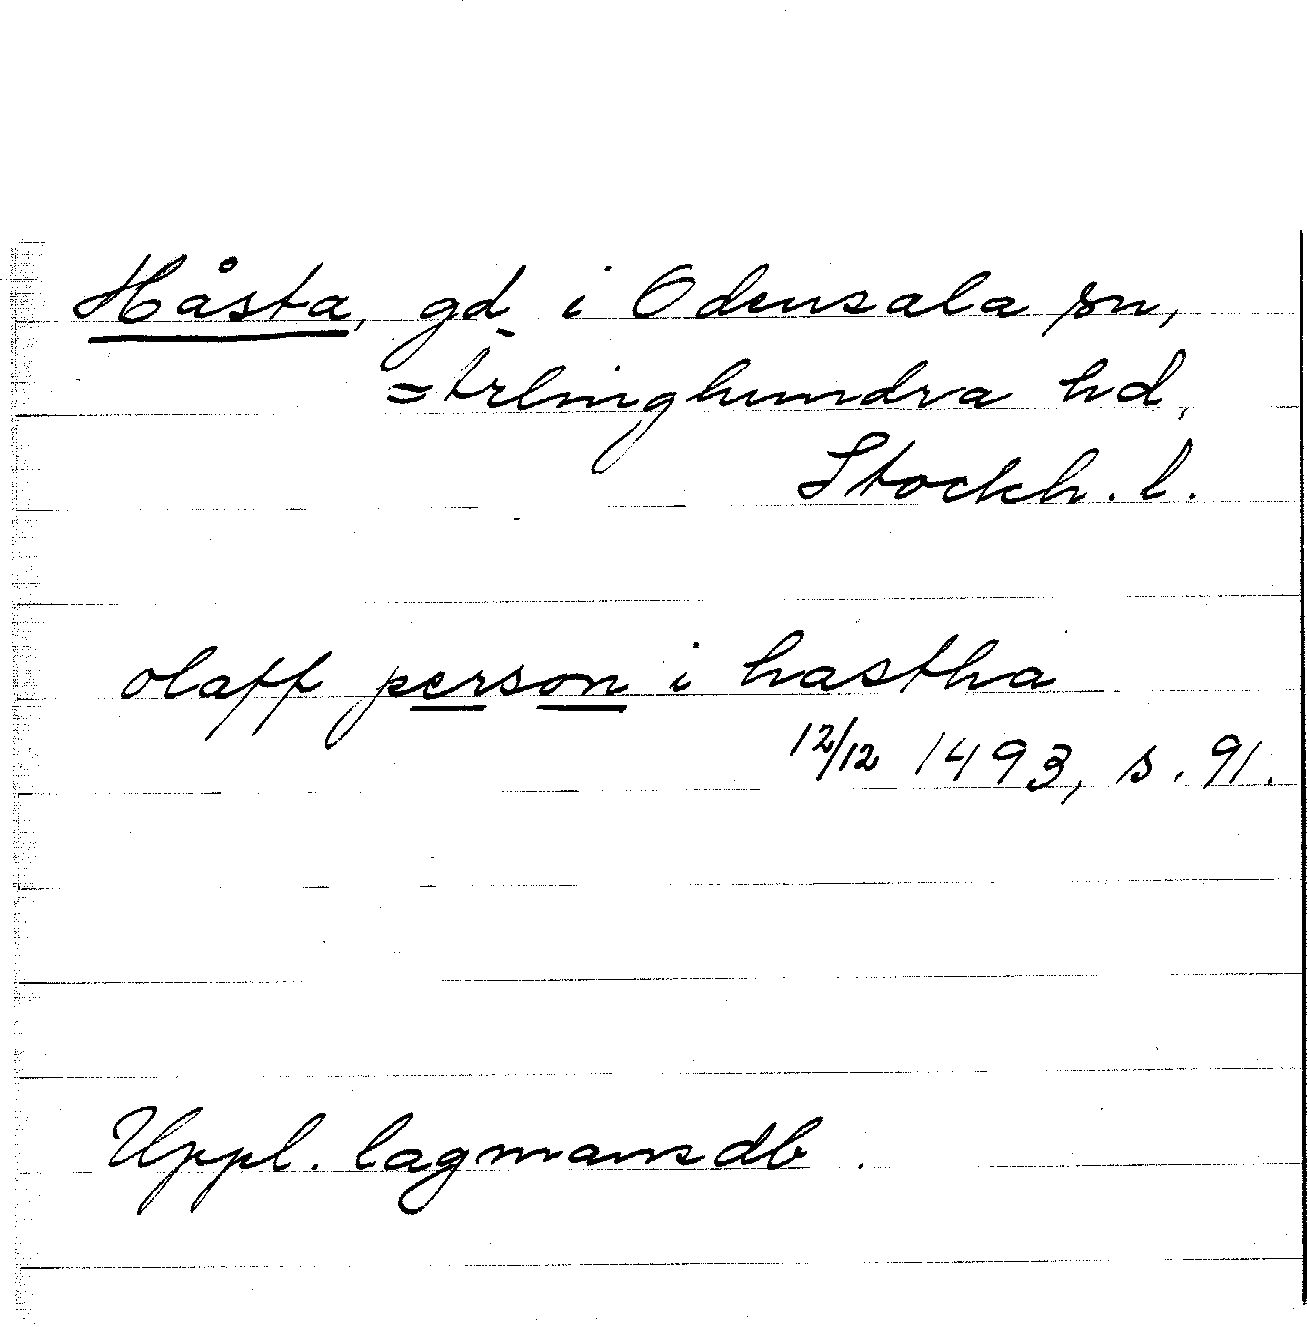 Håsta, gd i Odensala sn,
Ärlinghundra hd,
Stockh. l.
olaff person i hastha
12/12 1493, s. 91.
Uppl. lagmansdb.